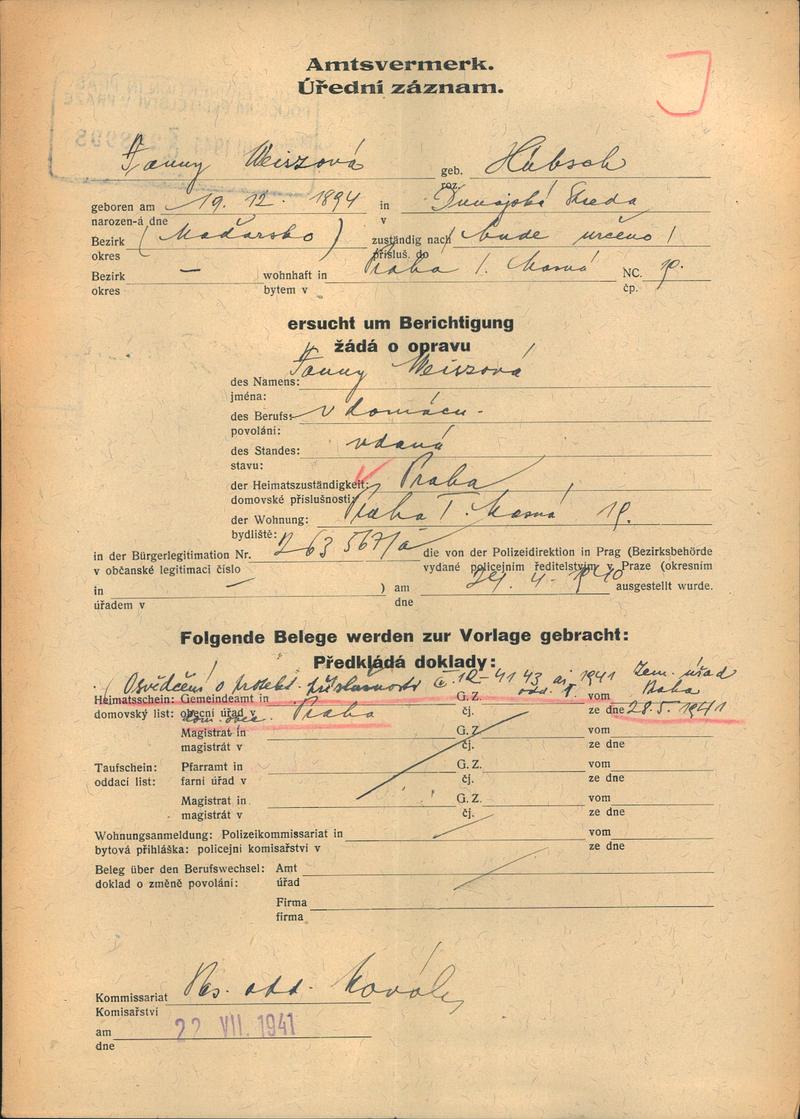 Amtsvermerk.
Úřední záznam.
Fanny Weiszová geb. Hübsch
roz.
geboren am 19. 12. 1894 in Dunajská Streda
narozen-á dne v
Bezirk (Maďarsko) zuständig nach bude určeno!
okres přísluš. do
Bezirk — wohnhaft in Praha I. Masná NC.
okres bytem v čp.
ersucht um Berichtigung
žádá o opravu
des Namens: Fanny Weiszová
jména:
des Berufs: v domácn.
povolání:
des Standes: vdaná
stavu:
der Heimatszuständigkeit: Praha
domovské příslušnosti:
der Wohnung: Praha I. Masná 19.
bydliště:
in der Bürgerlegitimation Nr. 263567/a die von der Polizeidirektion in Prag (Bezirksbehörde
v občanské legitimaci číslo vydané policejním ředitelstvím v Praze (okresním
in — ) am 24. 4. 1940 ausgestellt wurde.
úřadem v dne
Folgende Belege werden zur Vorlage gebracht:
Předkládá doklady:
Osvědčení o protekt. příslušnosti č. 1941 Zem. úřad
Heimatsschein: Gemeindeamt in G. Z. odd. vom Praha
domovský list: obecní úřad v Praha čj. ze dne 28. 5. 1941
Magistrat in G. Z. vom
magistrát v čj. ze dne
Taufschein: Pfarramt in G. Z. vom
oddací list: farní úřad v čj. ze dne
Magistrat in G. Z. vom
magistrát v čj. ze dne
Wohnungsanmeldung: Polizeikommissariat in vom
bytová přihláška: policejní komisařství v ze dne
Beleg über den Berufswechsel: Amt
doklad o změně povolání: úřad
Firma
firma
Kommissariat odd.
Komisařství
am 22 VII. 1941
dne